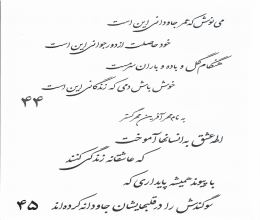 می نوش که عمر جاودانی این است
خود حاصلت از دور جوانی این است
هنگام گل و باده و یاران سرمست
خوش باش دمی که زندگانی این است
۴۴
به نام مهر آفرین مهرگستر
او عشق به انسانها آموخت
که عاشقانه زندگی کنند
با پیوند همیشه پایداری که
سوگندش را در قلبهایشان جاودانه کرده اند
۴۵